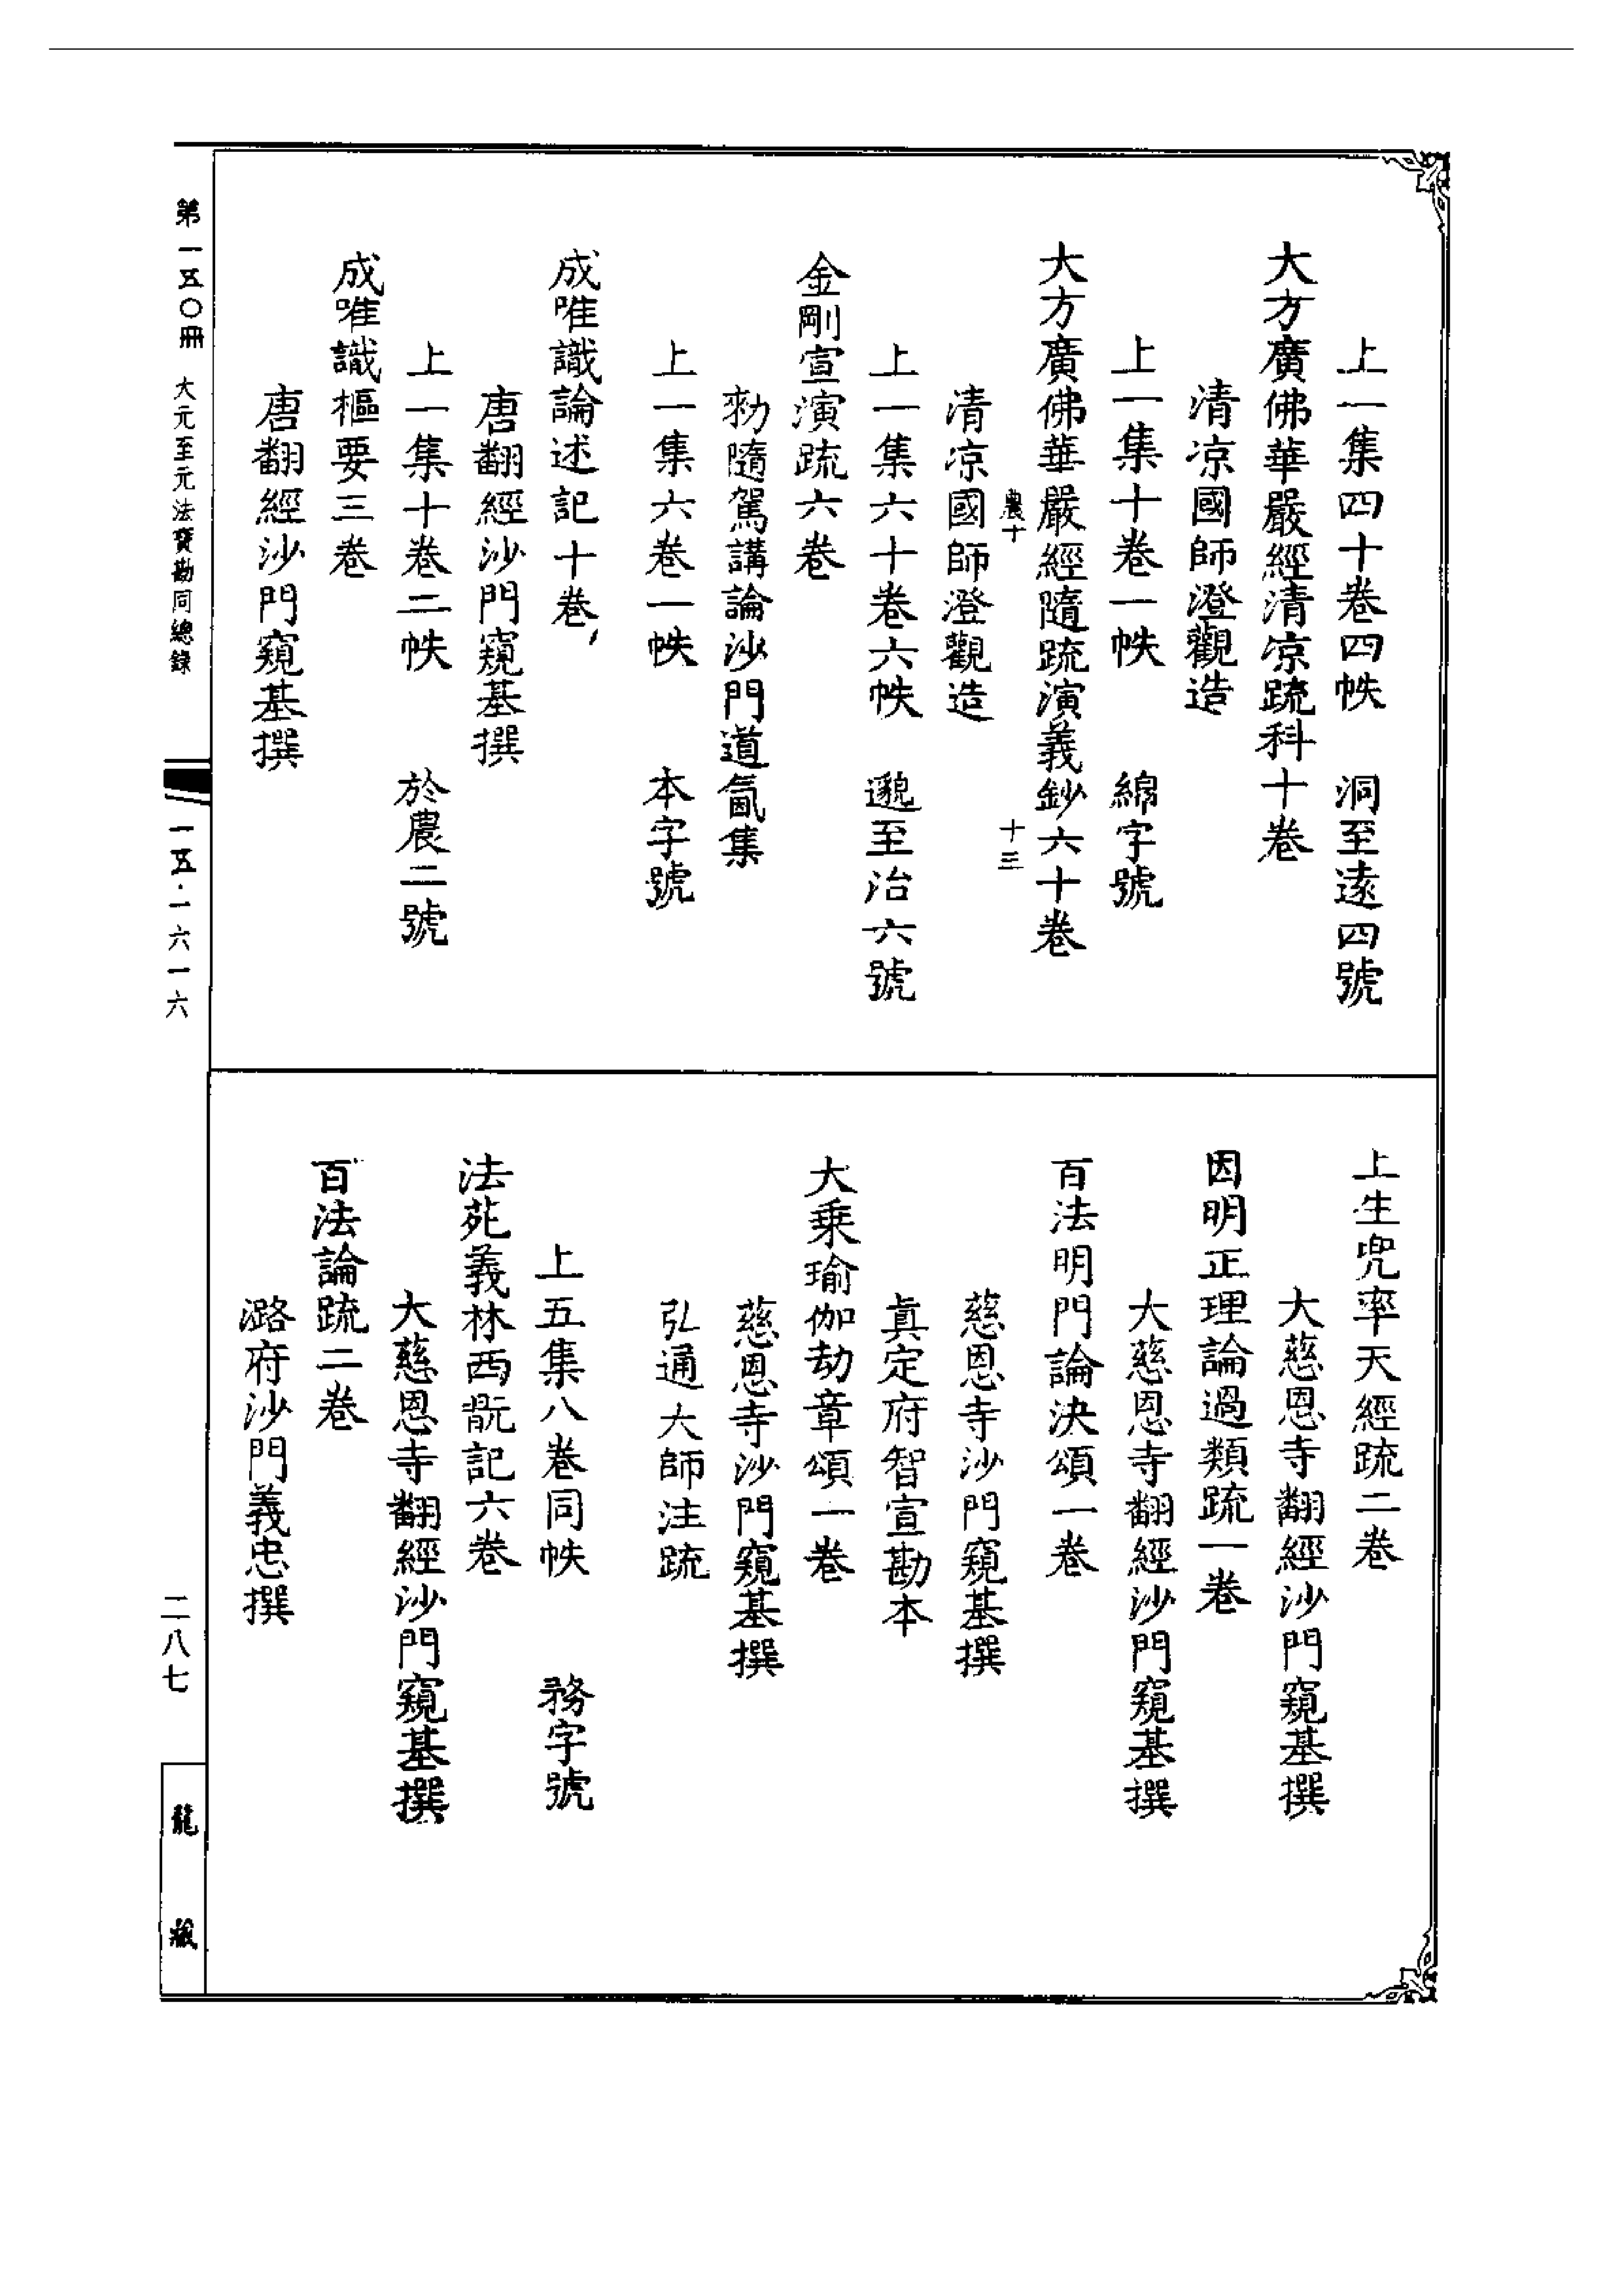 上一集四十卷四帙　洞至遠四號
大方廣佛華嚴經清凉疏科十卷
清凉國師澄觀造
上一集十卷一帙　綿字號
大方廣佛華嚴經隨疏演義鈔六十卷
農十　十三
清凉國師澄觀造
上一集六十卷六帙　邈至治六號
金剛宣演疏六卷
勑隨駕講論沙門道氤集
上一集六卷一帙　本字號
成唯識論述記十卷
唐翻經沙門窺基撰
上一集十卷二帙　於農二號
成唯識樞要三卷
唐翻經沙門窺基撰
上生兜率天經疏二卷
大慈恩寺翻經沙門窺基撰
因明正理論過類疏一卷
大慈恩寺翻經沙門窺基撰
百法明門論決頌一卷
慈恩寺沙門窺基撰
真定府智宣勘本
大乘瑜伽劫章頌一卷
慈恩寺沙門窺基撰
弘通大師注疏
上五集八卷同帙　務字號
法苑義林西翫記六卷
大慈恩寺翻經沙門窺基撰
百法論疏二卷
潞府沙門義忠撰
第一五〇冊　大元至元法寶勘同總錄
一五·一六一六
二八七
龍藏